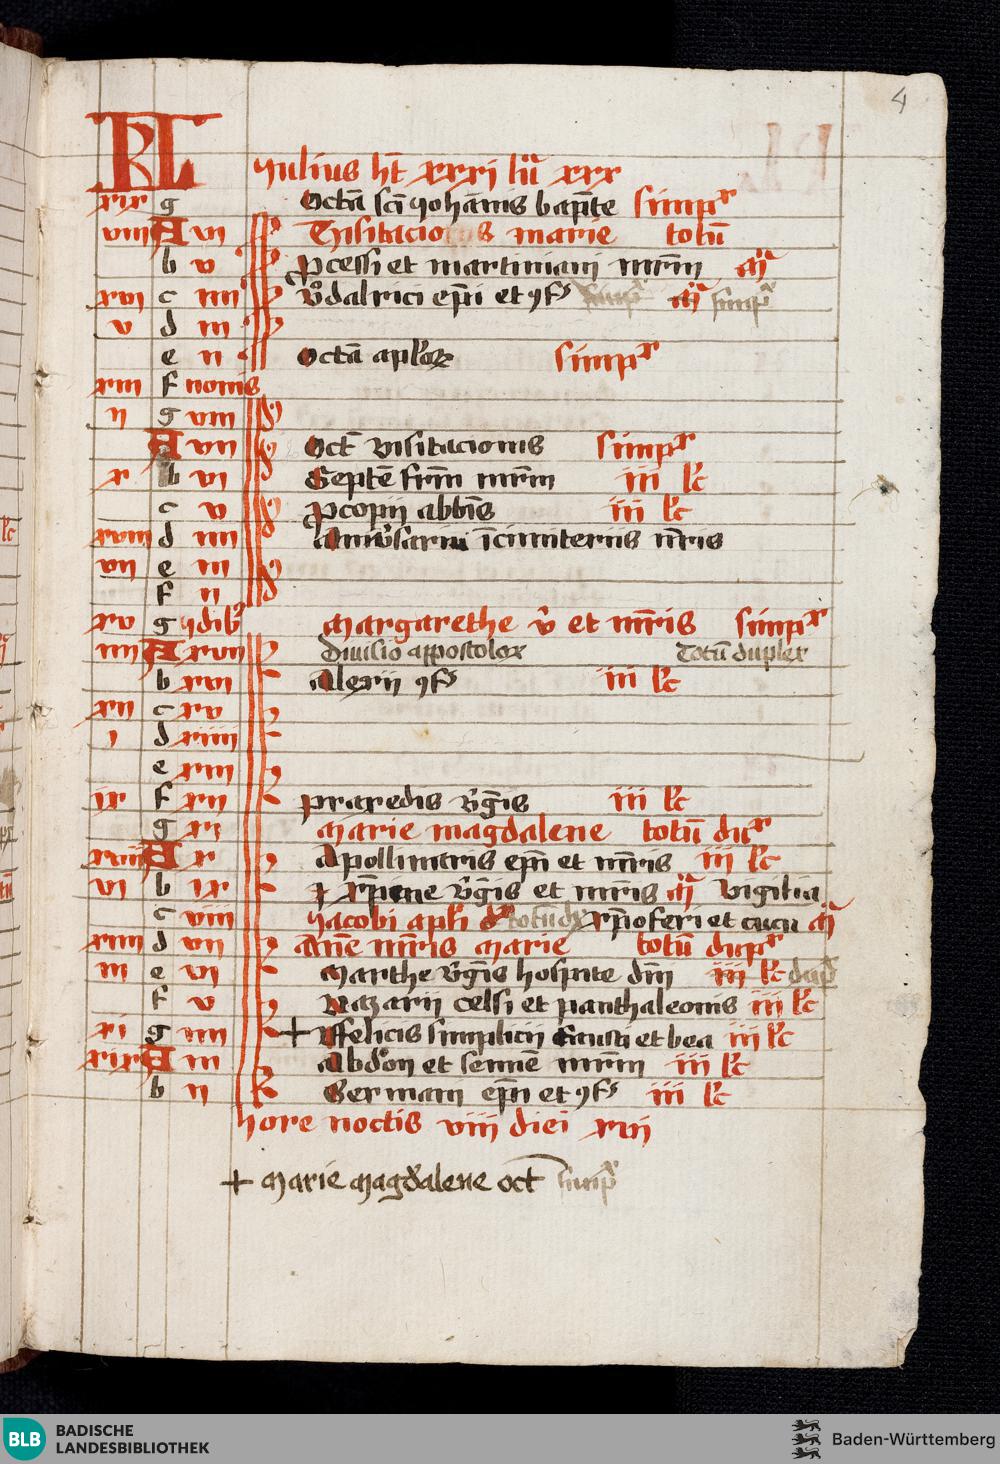 4
KL
Julius ht xxxi lu xxx
xix g Octa sci Johanis bapte simpx
viii A vi Visitacionis marie totu
b v Pcessi et martiniani mrm
xvi c iiii Vdalrici epi et 9fs simpx
v d iii
e ii Octa aplox simpx
xiii f nonis
ii g viii
A vii Oct visitacionis simpx
x b vi Septe frm mrm iii lc
c v Pcopii abbis iii lc
xviii d iiii Aniusariu i cimiterus nris
vii e iii
f ii
xv g ydib9 Margarethe v et mris simpx
iiii A xvii Diuisio appostolox Totu duplex
b xvi Alexii 9fs iii lc
xii c xv
i d xiiii
e xiii
ix f xii Praxedis vgis iii lc
g xi Marie magdalene totu dux
xvii A x Apollinaris epi et mris iii lc
vi b ix + xpine vgis et mris Vigilia
c viii Jacobi apli xpoferi et cucu
xiiii d vii Anne mris marie totu dupx
iii e vi Marthe vgis hospite dni iii lc dup
f v Nazarii celsi et panthaleonis iii lc
xi g iiii + Felicis simplicii fausti et bea iii lc
xix A iii Abdon et senne mrm iii lc
b ii Germani epi et 9fs iii lc
hore noctis viii diei xvi
+ marie magdalene oct simpx
BLB
BADISCHE
LANDESBIBLIOTHEK
Baden-Württemberg